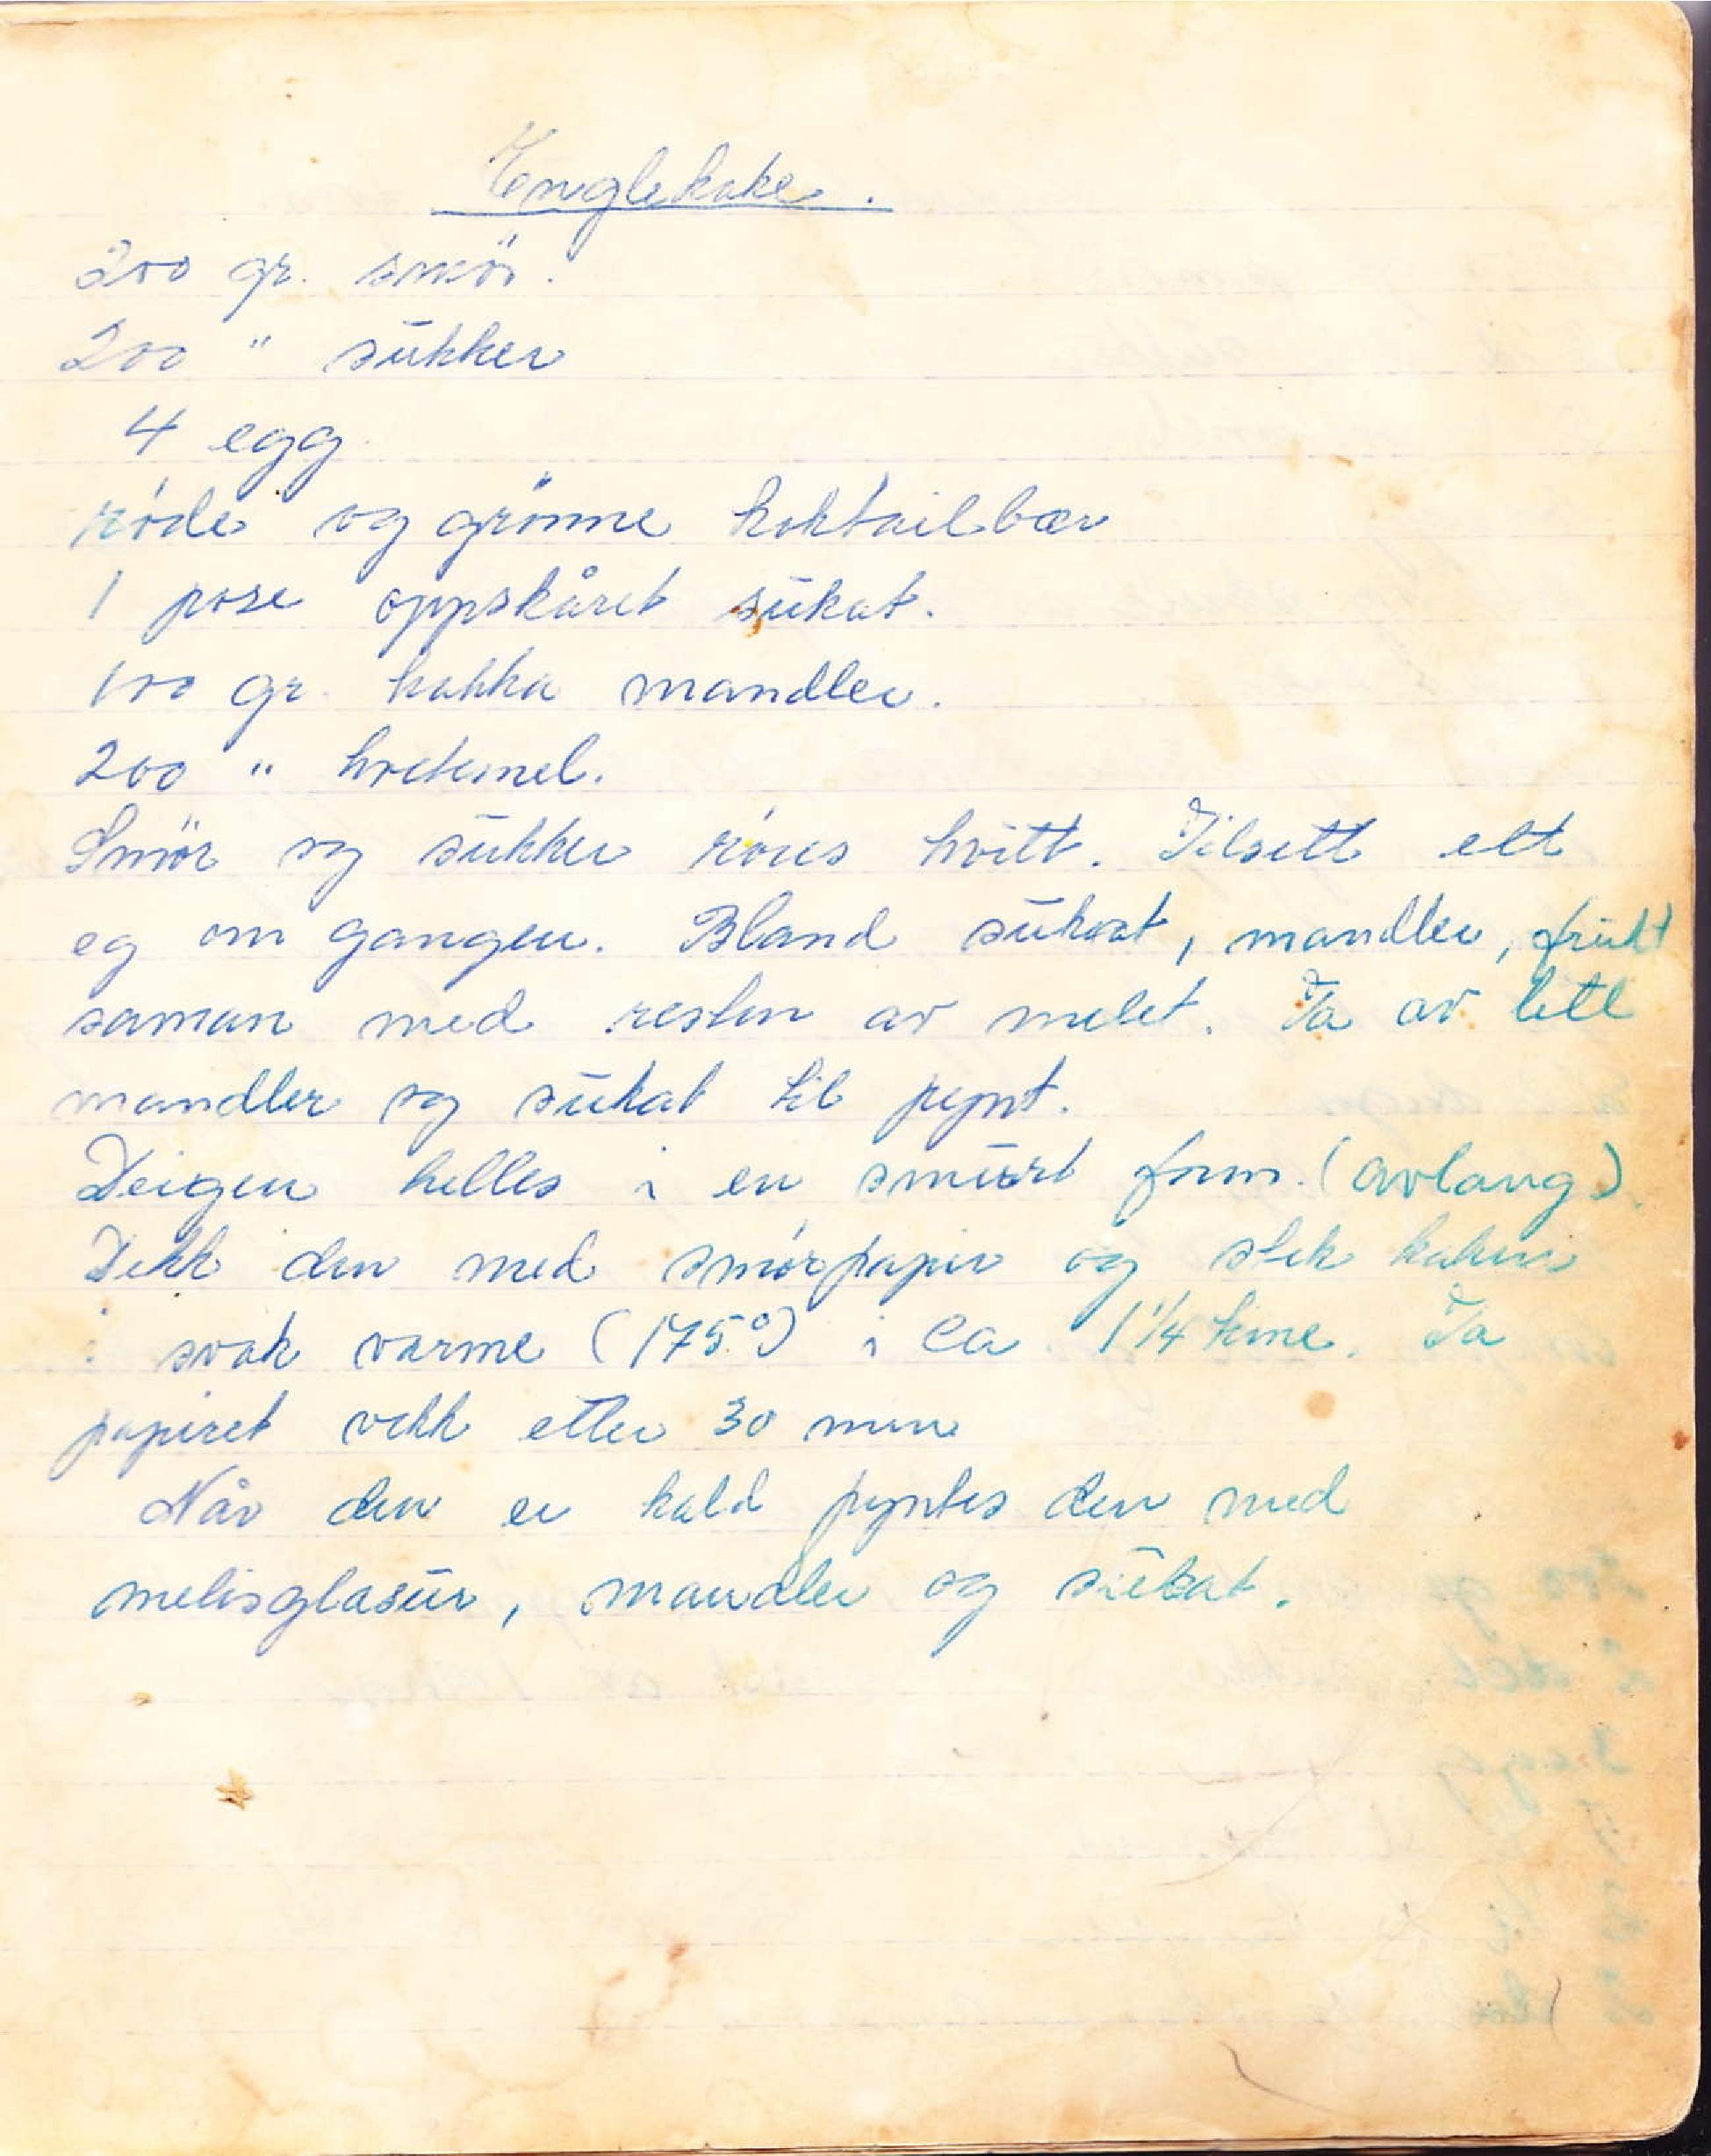 Englekake.
200 gr. smör.
200 " sukker
4 egg
røde og grönne koktailbær
1 pose oppskåret sukat.
100 gr. hakka mandler.
200 " hvetemel.
Smör og sukker røres hvitt. Tilsett ett
eg om gangen. Bland sukat, mandler, frukt
saman med resten av melet. Ta av litt
mandler og sukat til pynt.
Deigen helles i en smurt form. (avlang).
Dekk den med smørpapir og stek kaken
i svak varme (175°) i ca 1 1/4 time. Ta
papiret vekk etter 30 min
Når den er kald pyntes den med
melisglasur, mandler og sukat.